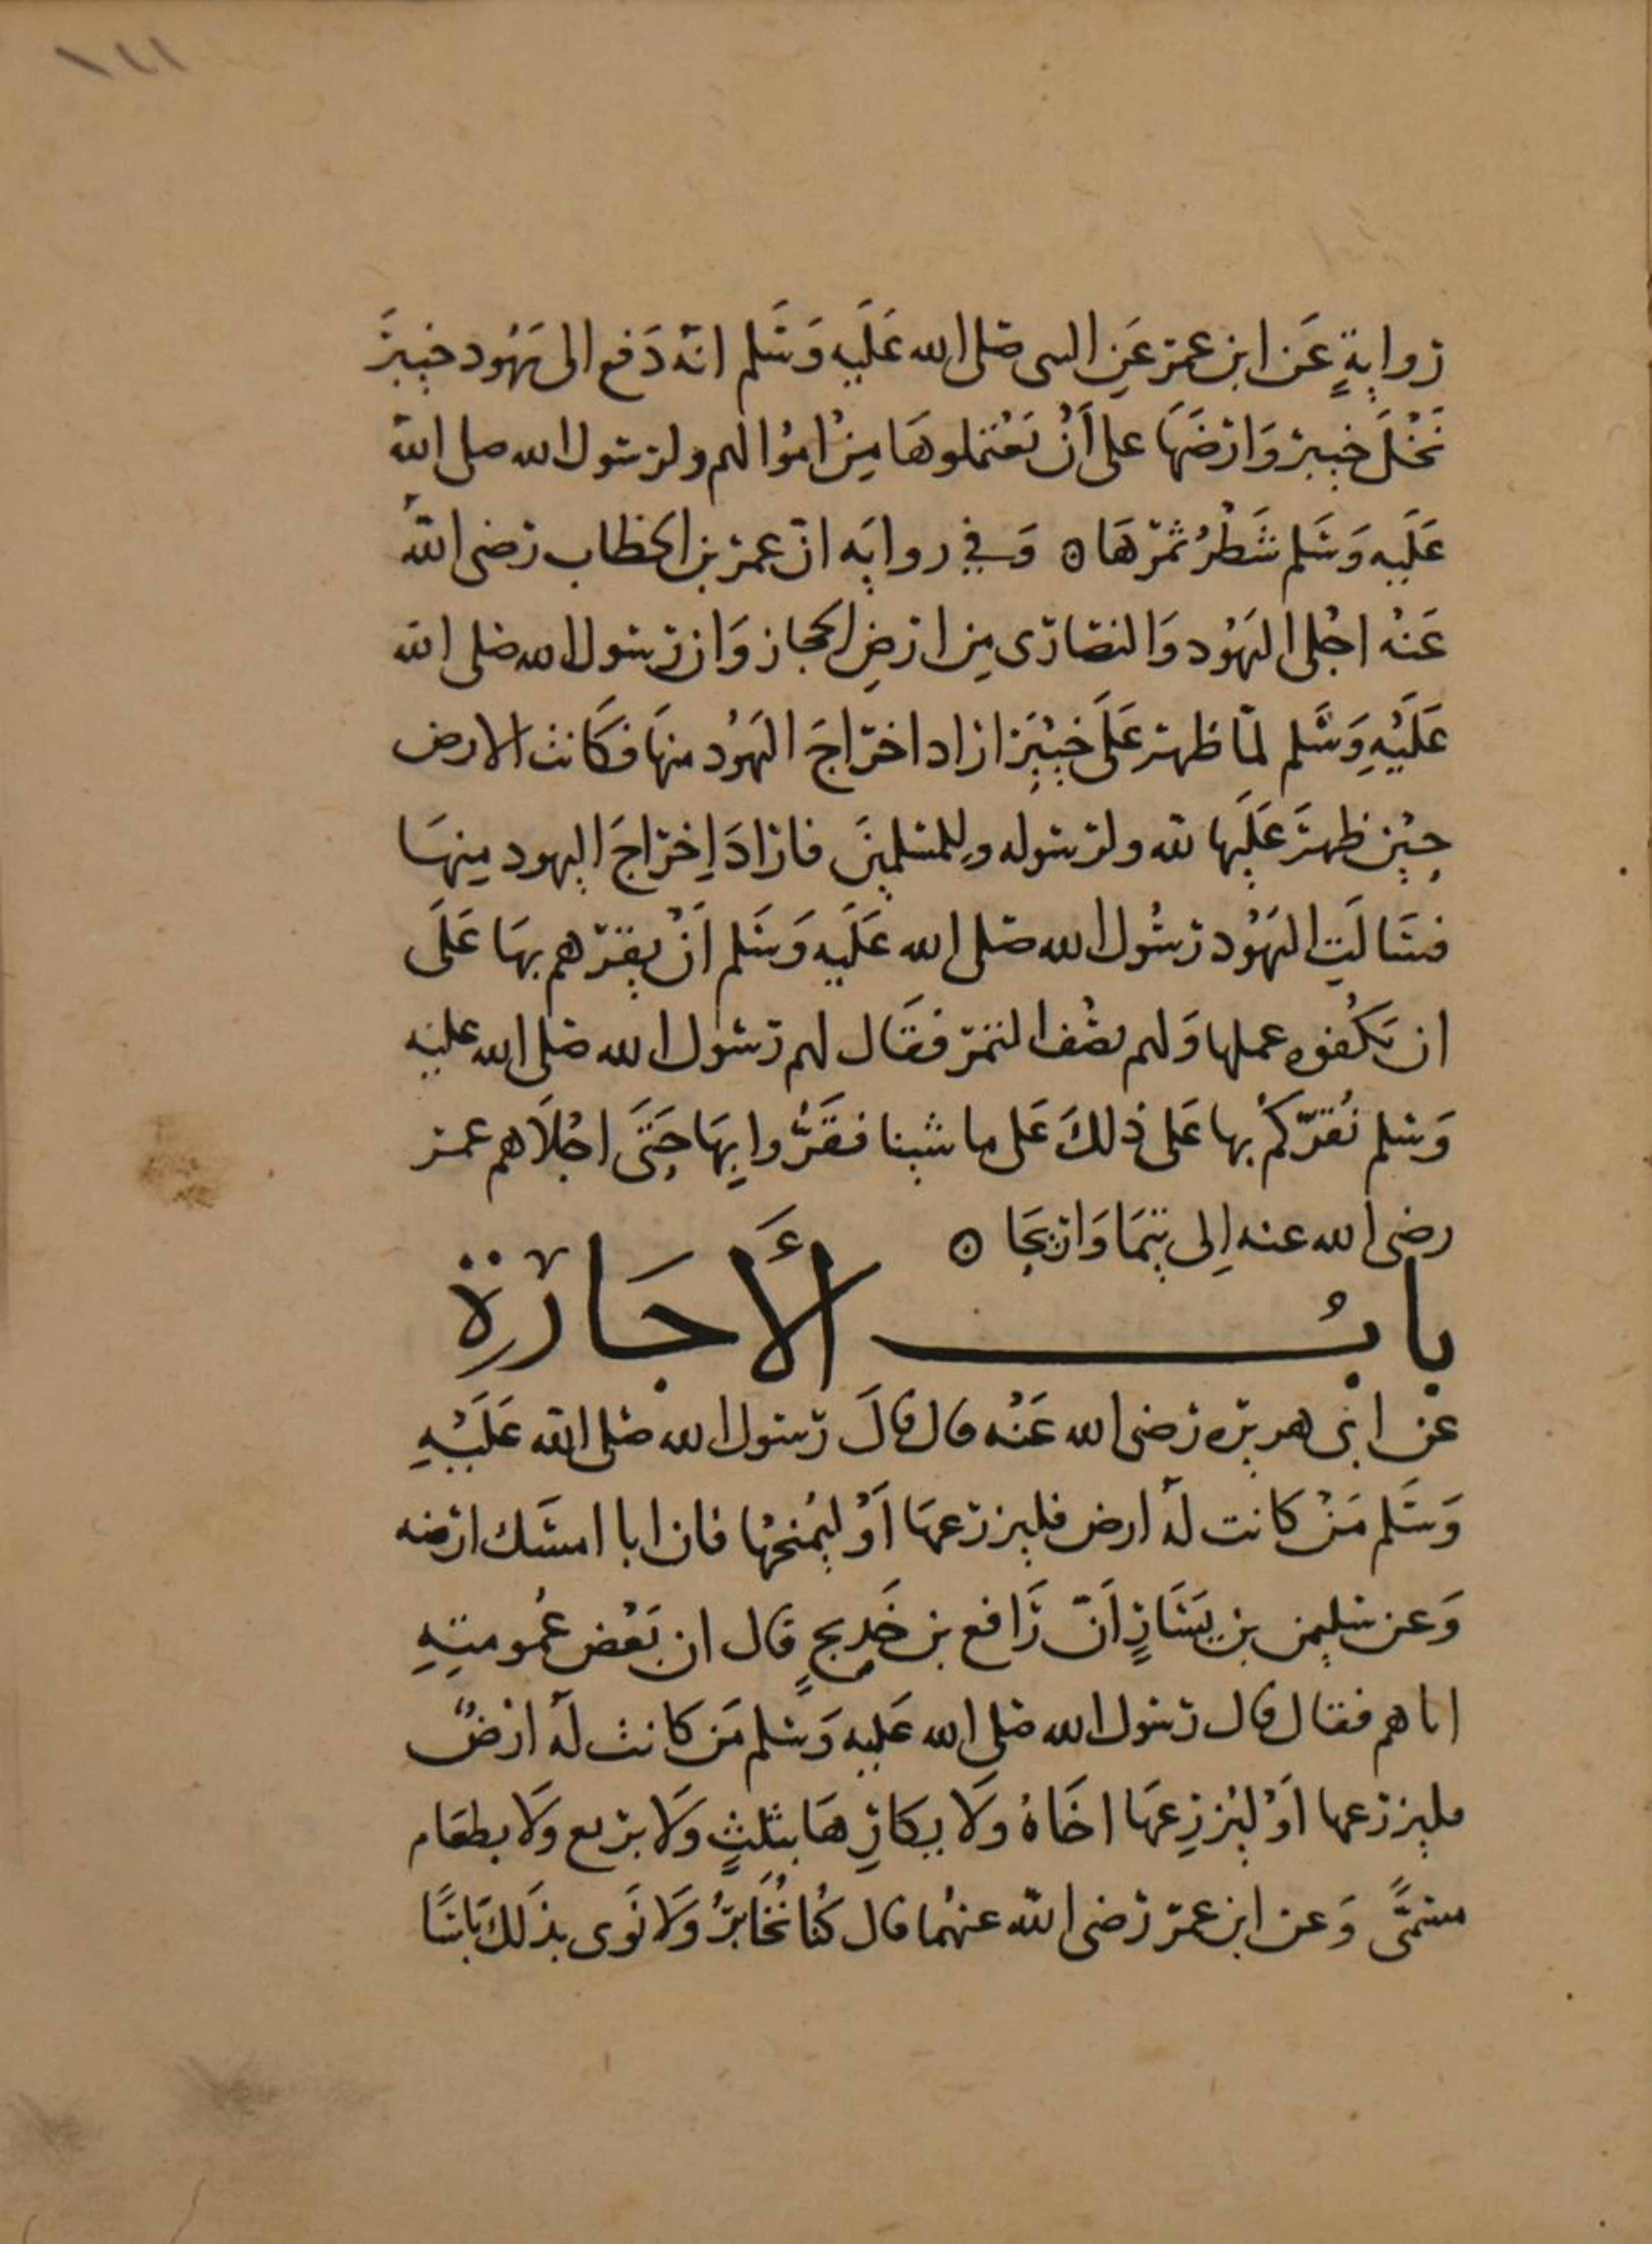 ١٤١
روايةٍ عَن ابن عمر عَنِ النبى صلى الله عَلَيه وَسَلم انّه دَفع الى يَهُود خيبرَ
نَخْلَ خيبر وَارضَهَا على أَنْ يَعْتملوهَا مِنْ امْوالهم ولرسول الله صلى الله
عَلَيه وَسَلم شَطْرُ ثمرهَا ۝ وَفي روايَه انّ عمر بن الخطاب رضى اللّهُ
عَنْه اجْلى اليَهُود وَالنصَارَى مِن ارضِ الحجاز وَان رسول الله صلى الله
عَلَيْهِ وَسَّلم لمّا ظهر عَلَى خَيْبَرَ اراد اخرَاجَ اليَهُود منهَا فكَانت الارض
حِيْن ظهرَ عَلَيها لله ولرسوله وللمسلمينَ فارَادَ اِخرَاجَ اليهود مِنهَا
فسَالَتِ اليَهُود رسُول الله صَلى الله عَلَيه وَسَلم اَنْ يقرّهم بهَا عَلَى
ان يَكْفوه عملها وَلهم نصْف الثمَر فقَال لهم رَسُول الله صَلى الله عليه
وَسلم نُقرّكمْ بها عَلى ذلكَ عَلى ما شينا فقَرُّوا بِهَا حَتىَ اجْلاَهم عمر
رضى الله عنه اِلى تيمَا وَاريحَا ۝
بابُ الأَجَارة
عن ابى هريره رضى الله عَنْه قال قالَ رَسول الله صلى الله عَلَيْهِ
وَسَلم مَنْ كانت لهُ ارض فليزرعهَا اَوْ ليَمْنحْها فان ابا امسَك ارضه
وَعن سليمن بن يَسَارٍ اَنّ رَافع بن خَدِيجٍ قال ان بَعْض عُمومتِهِ
اتاهم فقال قال رسول الله صلى الله عَليه وَسلم مَن كانت لهُ ارضٌ
فليزرعها اَوْ ليُزرِعهَا اخَاهُ وَلا يكارِهَا بثلثٍ وَلا بربع وَلا بطعَام
مسَمًّى وَعن ابن عمرَ رضى اللّه عنهُما قال كُنا نُخَابرُ وَلا نَرى بذَلك بَاسًا